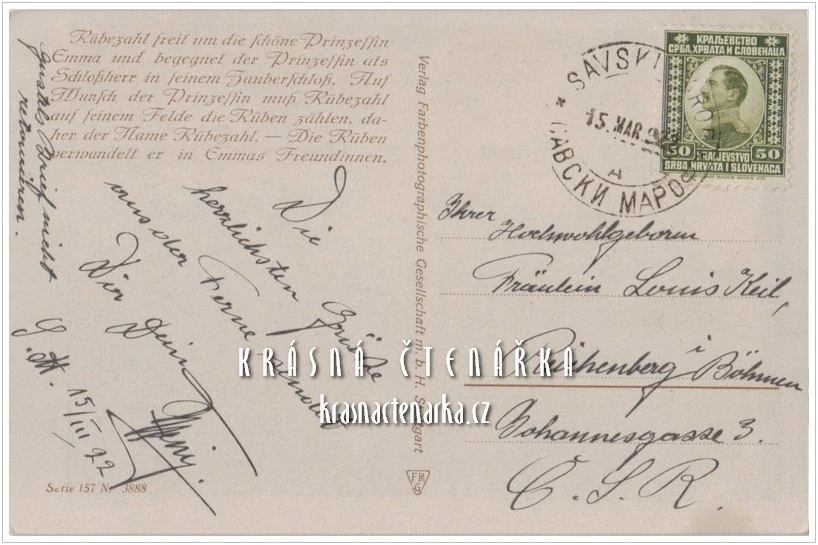 Rübezahl freit um die schöne Prinzessin
Emma und begegnet der Prinzessin als
Schloßherr in seinem Zauberschloß. Auf
Wunsch der Prinzessin muß Rübezahl
auf seinem Felde die Rüben zählen, da-
her der Name Rübezahl. — Die Rüben
verwandelt er in Emmas Freundinnen.
Brief nicht
retournieren.
Die
herrlichsten Grüße
aus der Ferne
Dir Deine
G. H. 15/III 22
Serie 157 Nr. 3888
Verlag Farbenphotographische Gesellschaft m. b. H. Stuttgart
КРАЉЕВСТВО
СРБА, ХРВАТА И СЛОВЕНАЦА
50 KRALJEVSTVO 50
SRBA, HRVATA I SLOVENACA
SAVSKI MAROF
15. MAR 922
A
* САВСКИ МАРОФ
Ihrer
Hochwohlgeboren
Fräulein Louis Keil,
Reichenberg i
Böhmen
Johannesgasse 3.
Č. S. R.
FRG
KRÁSNÁ ČTENÁŘKA
krasnactenarka.cz